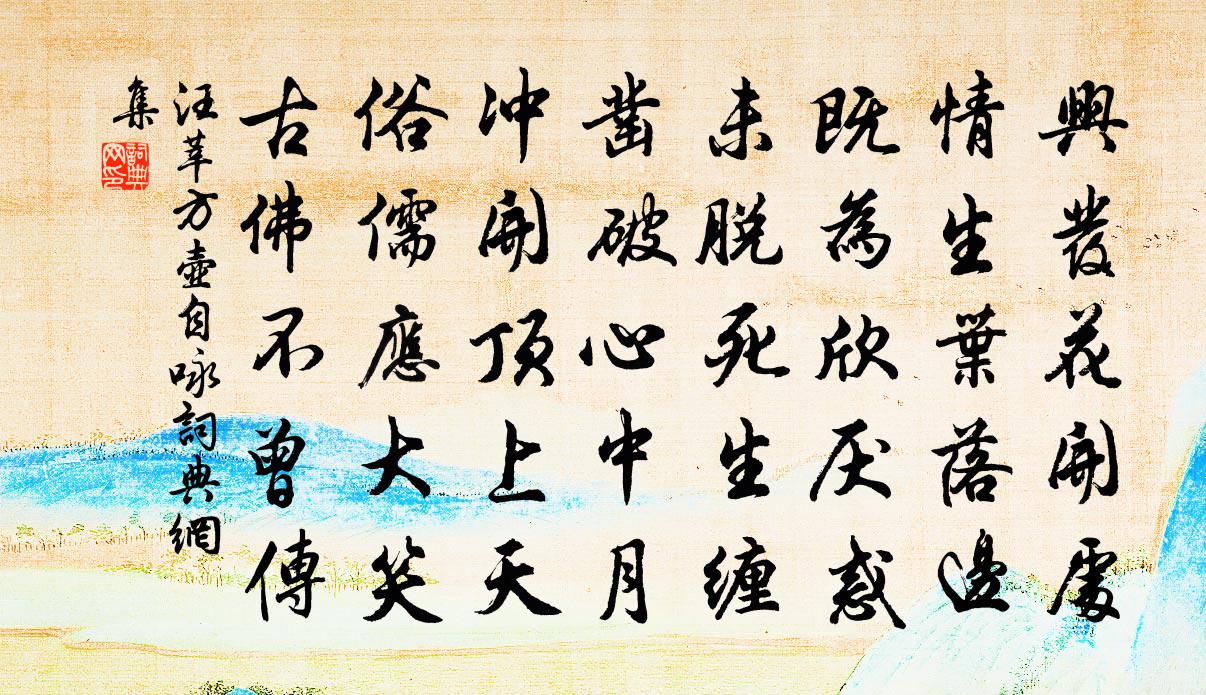 興發花開處
情生葉落邊
既為欣厌惑
未脱死生缠
凿破心中月
冲開顶上天
俗儒應大笑
古佛不曾傳
汪莘方壺自咏詞典網
集
詞典網印